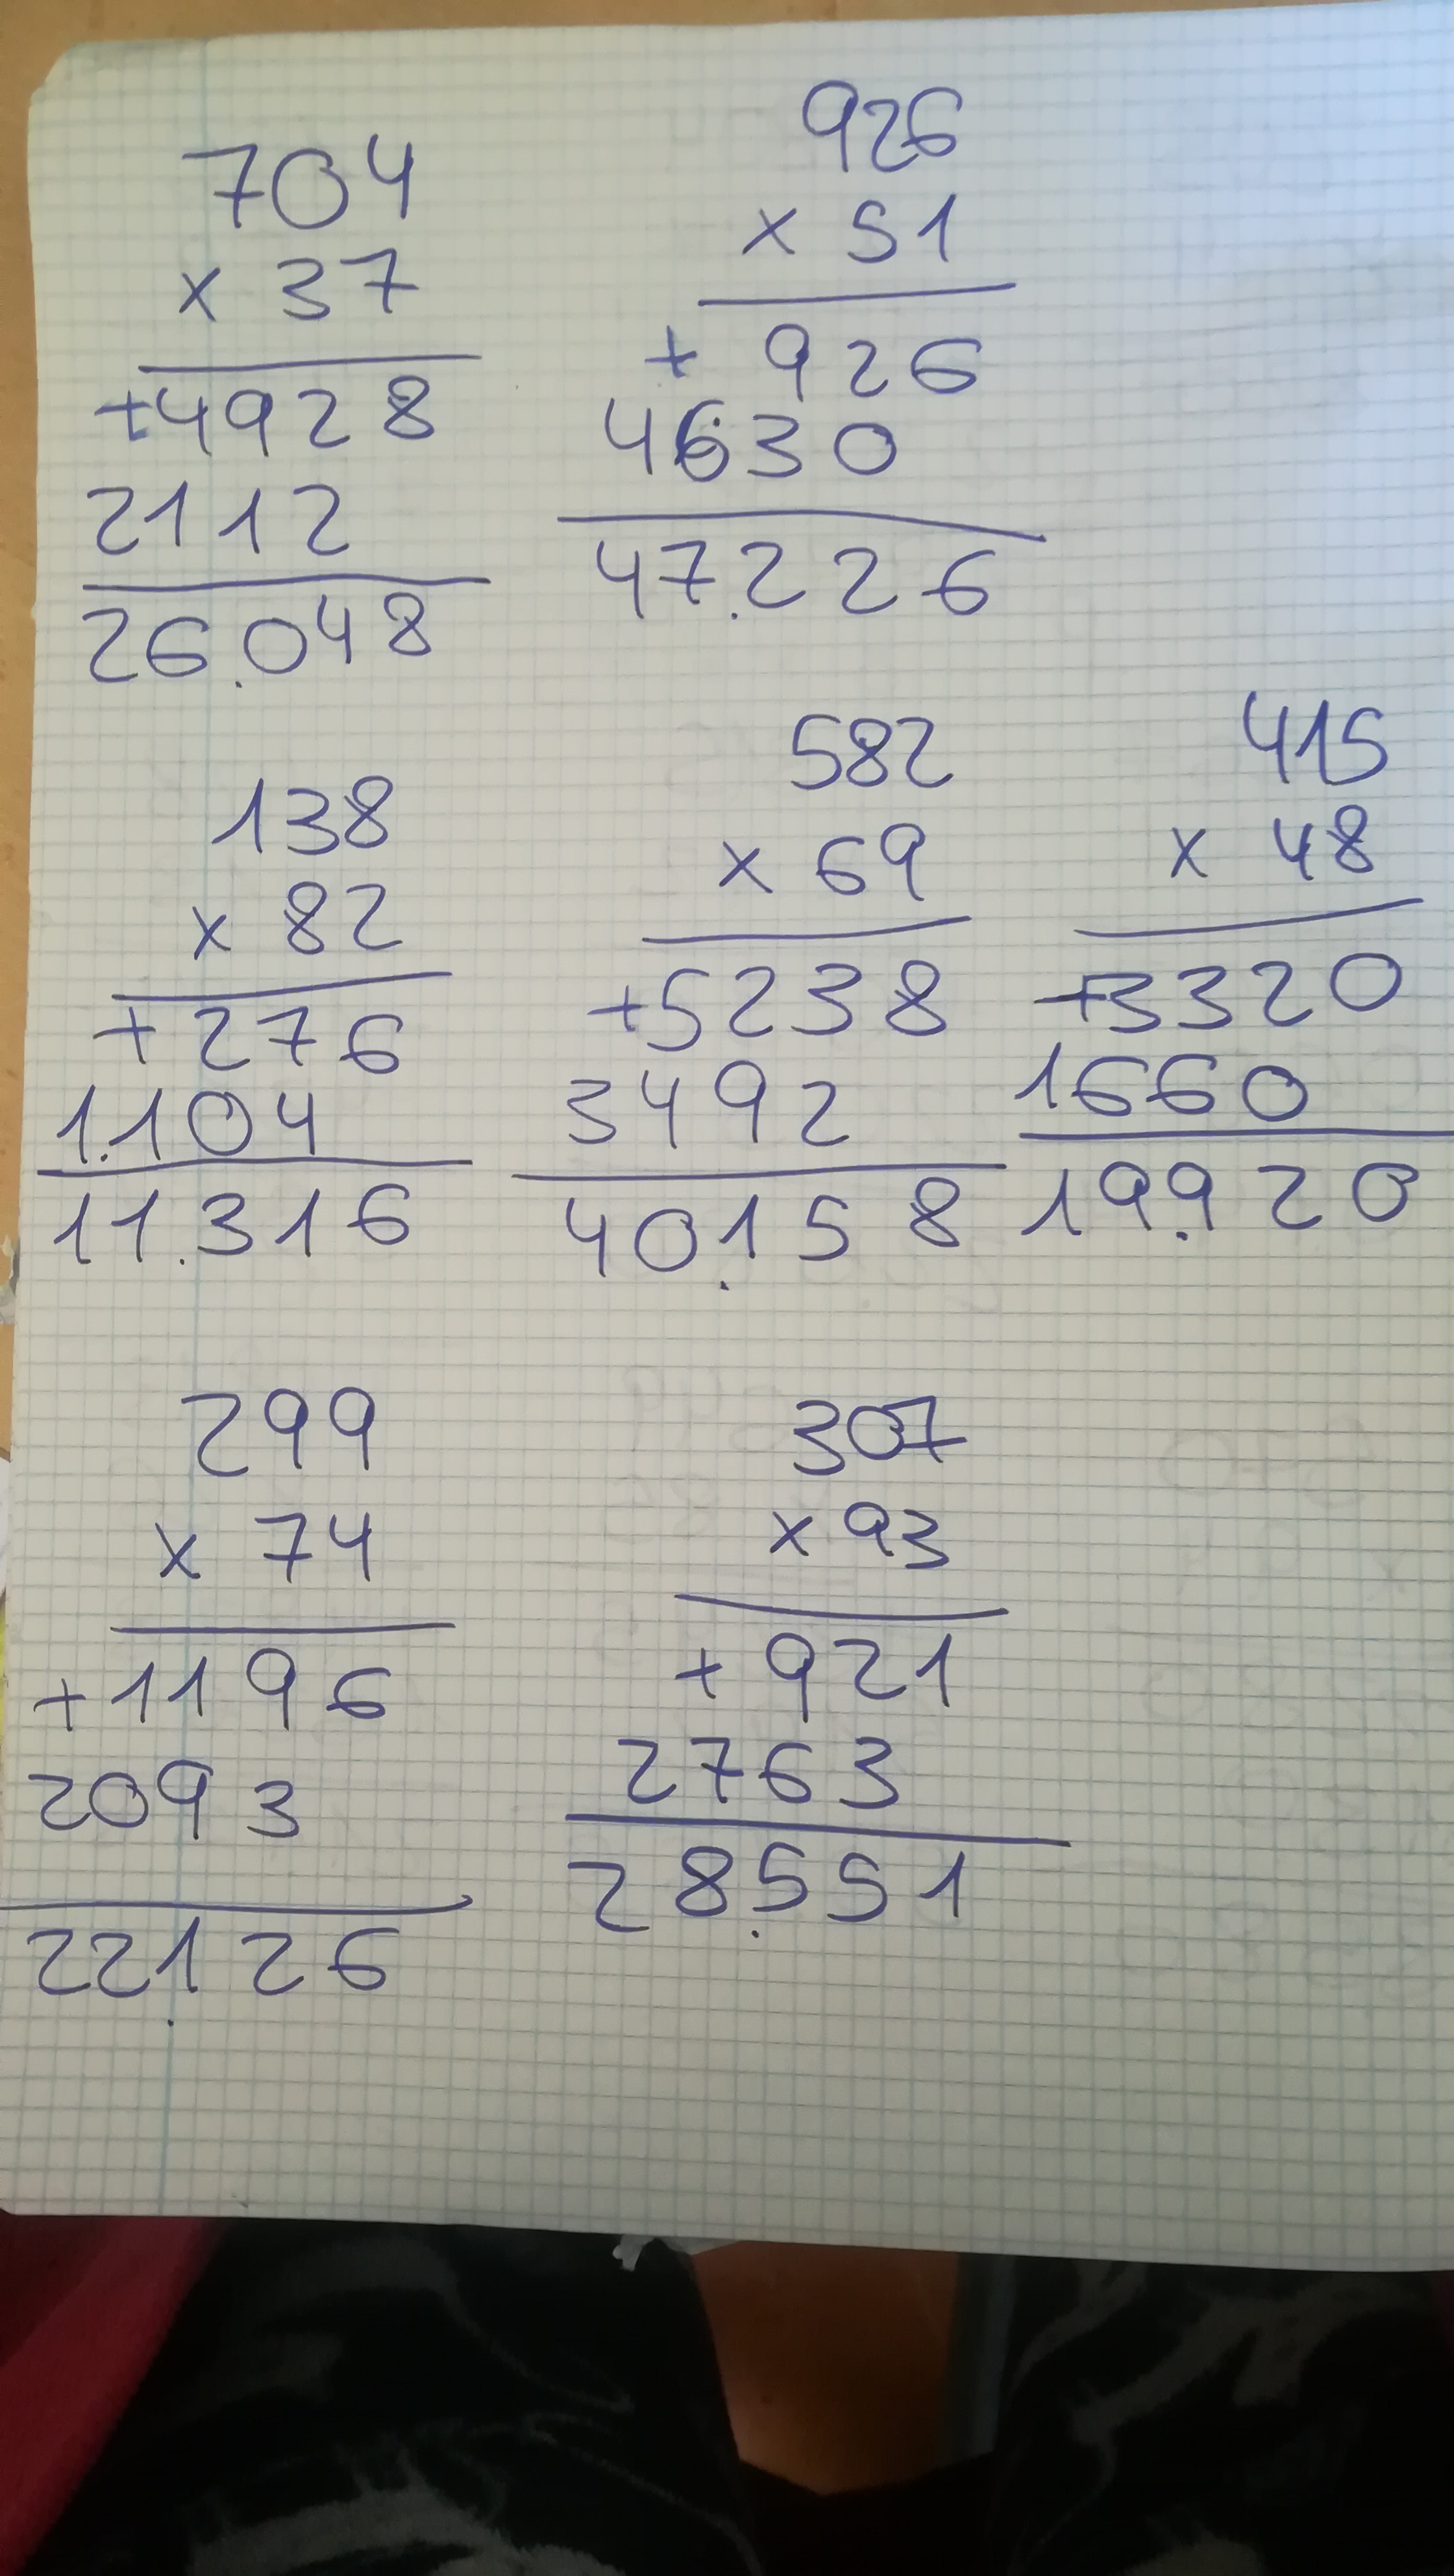 704
x 37
+4928
2112
26.048
926
x 51
+ 926
4630
47.226
138
x 82
+ 276
1.104
11.316
582
x 69
+5238
3492
40.158
415
x 48
+3320
1660
19.920
299
x 74
+1196
2093
22.126
307
x 93
+ 921
2763
28.551